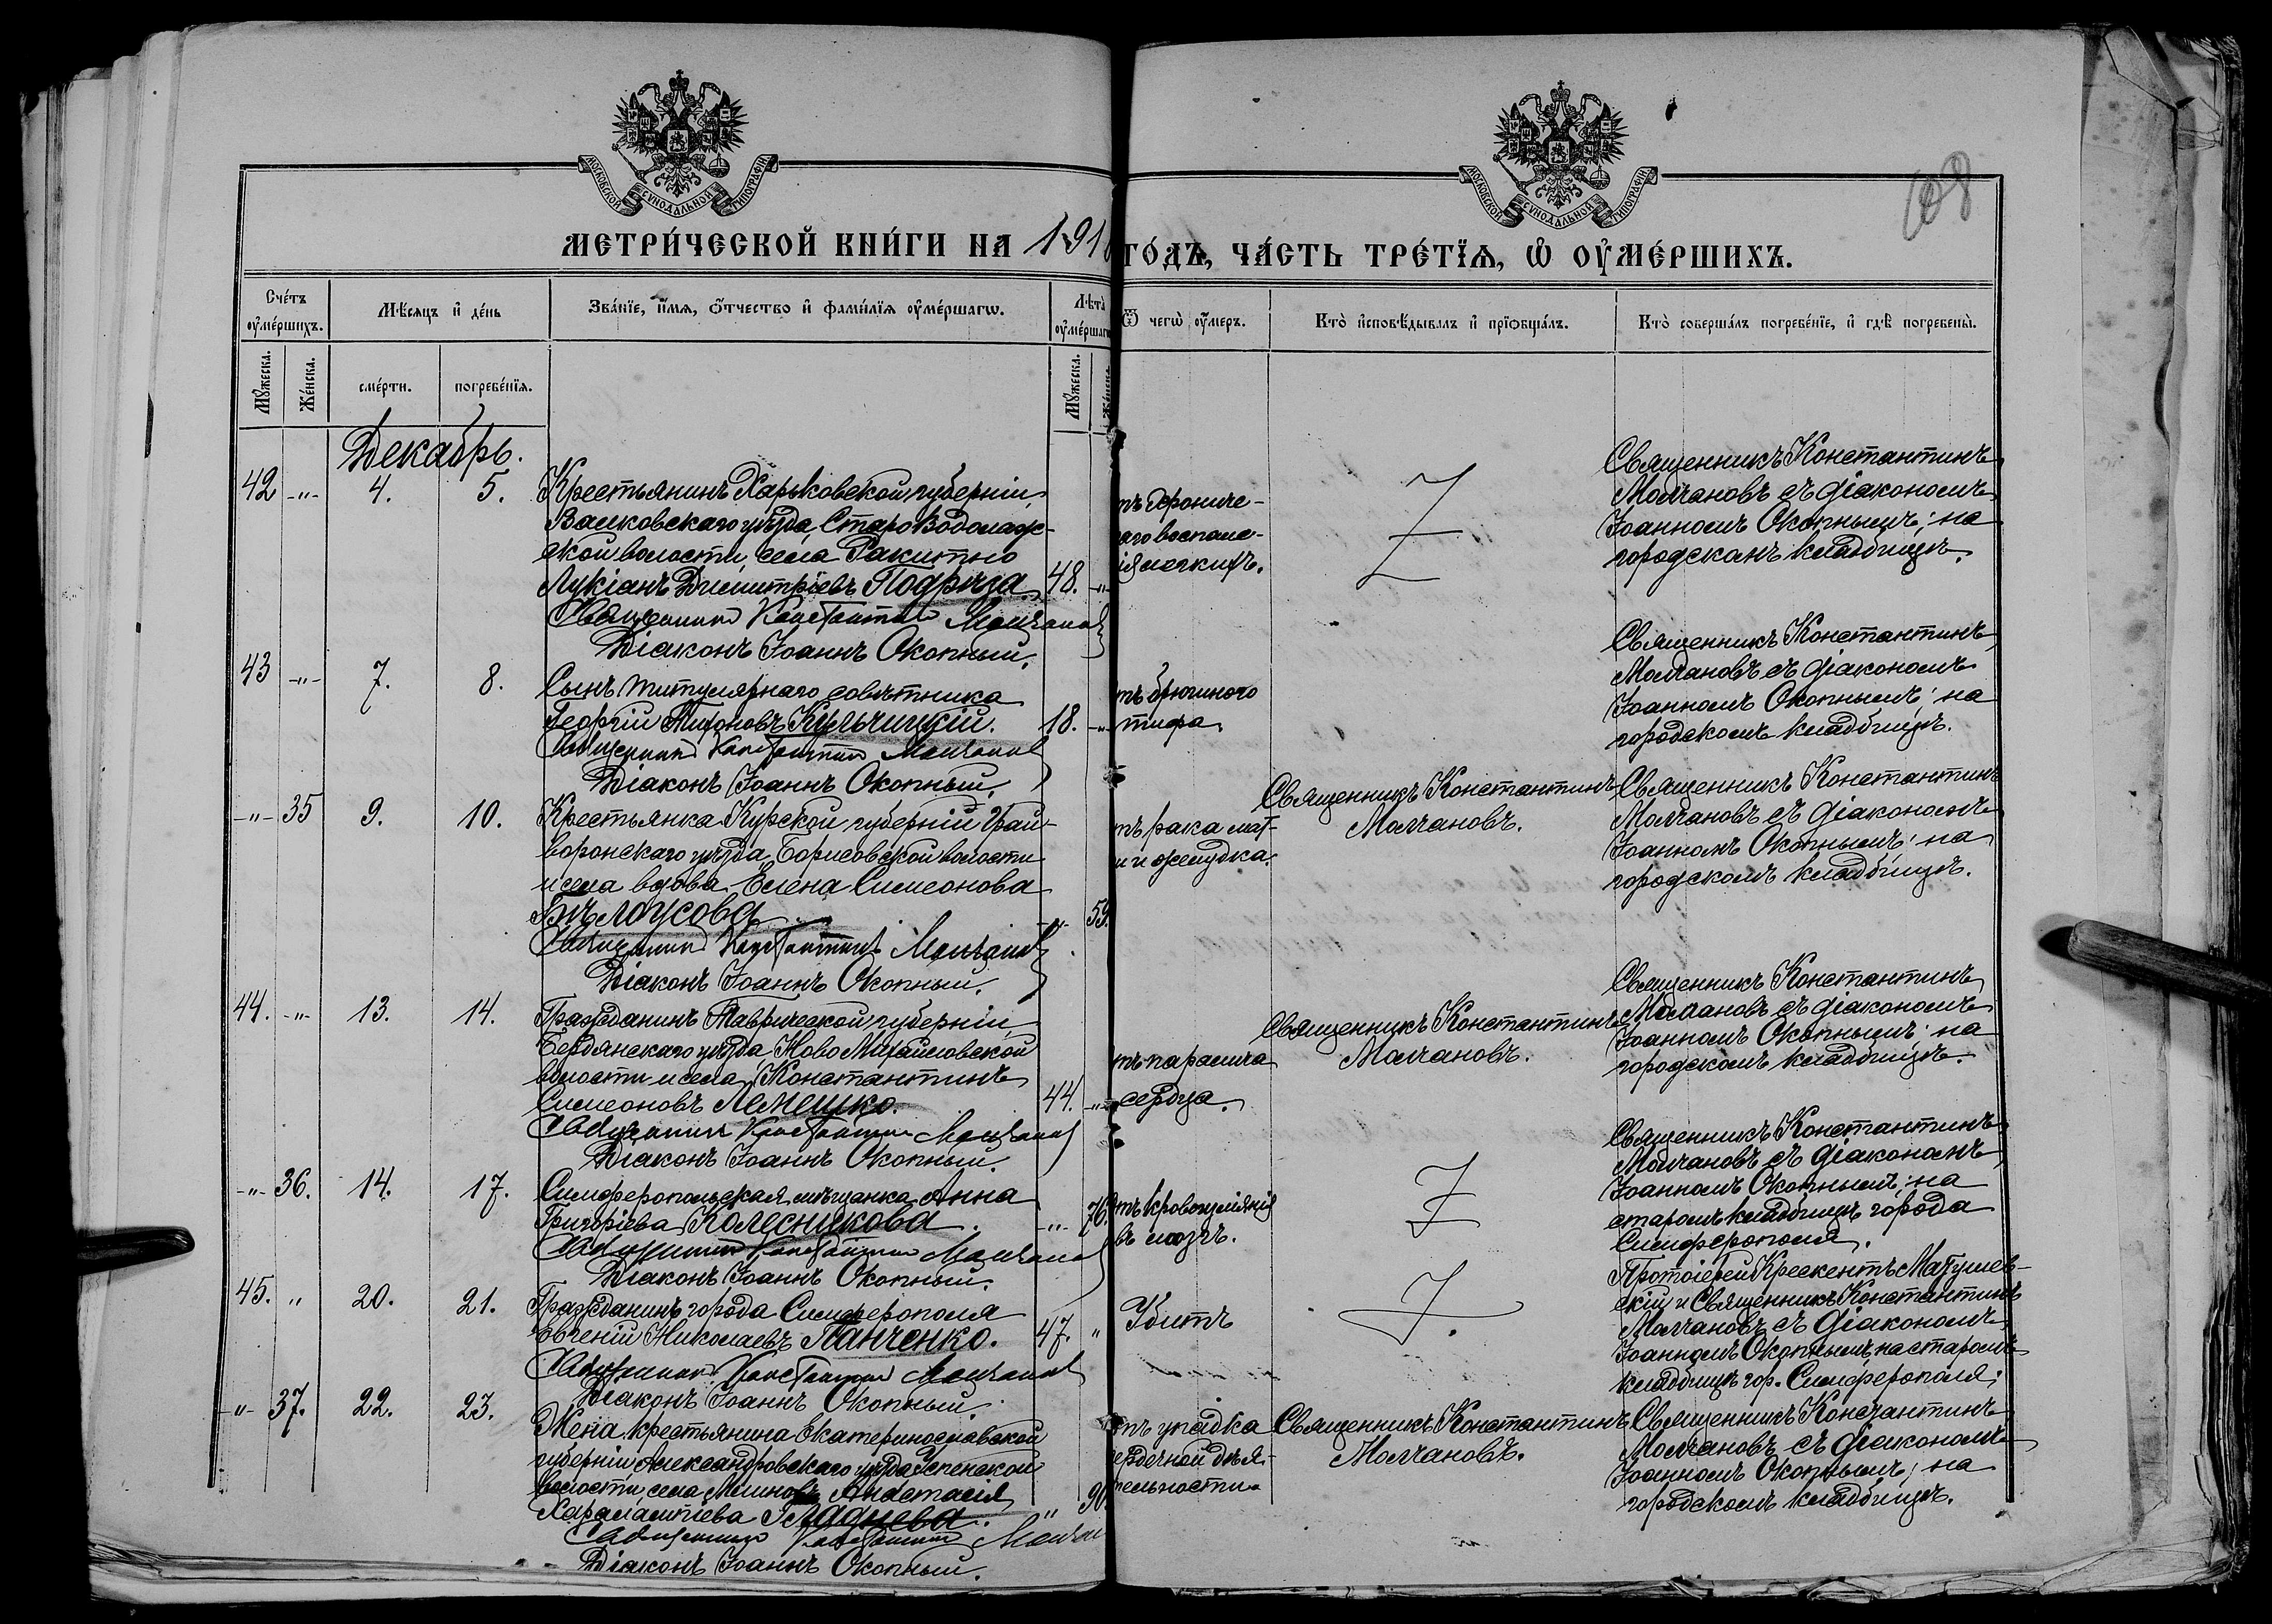 МОСКОВСКОЙ СУНОДАЛЬНОЙ ТИПОГРАФІИ
МОСКОВСКОЙ СУНОДАЛЬНОЙ ТИПОГРАФІИ
108
МЕТРИ́ЧЕСКОЙ КНИ́ГИ НА 191
ГО́ДЪ, ЧА́СТЬ ТРЕ́ТЇѦ, Ѡ҆ ОУ҆МЕ́РШИХЪ.
Сче́тъ оу҆ме́ршихъ.
Мѣ́сѧцъ и҆ де́нь
Зва́нїе, и҆́мѧ, ѻ҆́тчество и҆ фами́лїѧ оу҆ме́ршагѡ.
Лѣ́та оу҆ме́ршаг
Ѿ чегѡ̀ оу҆́меръ.
Кто̀ и҆сповѣ́дывалъ и҆ прїѻбща́лъ.
Кто̀ соверша́лъ погребе́нїе, и҆ гдѣ̀ погребены̀.
Му́жеска.
Же́нска.
сме́рти.
погребе́нїѧ.
Му́жеска.
Декабрь.
42 -"- 4. 5.
Крестьянинъ Харьковской губерніи
Валковскаго уѣзда, Староводолаж-
ской волости, села Ракитно
Лукіанъ Димитріевъ Подрѣза. 48. -"-
Священникъ Константинъ Молчанов
Діаконъ Іоаннъ Окопный.
тъ хрониче-
аго воспале-
ія легкихъ.
Священникъ Константинъ
Молчановъ съ діакономъ
Іоанномъ Окопнымъ; на
городскомъ кладбищѣ.
43 -"- 7. 8.
Сынъ титулярнаго совѣтника
Георгій Тихоновъ Кульчицкій. 18. -"-
Священникъ Константинъ Молчанов
Діаконъ Іоаннъ Окопный.
тъ брюшного
тифа.
Священникъ Константинъ
Молчановъ съ діакономъ
Іоанномъ Окопнымъ; на
городскомъ кладбищѣ.
-"- 35 9. 10.
Крестьянка Курской губерніи Грай-
воронскаго уѣзда, Борисовской волости
и села вдова Елена Симеонова
Бѣлоусова -"- 59.
Священникъ Константинъ Молчанов
Діаконъ Іоаннъ Окопный.
тъ рака мат-
и и желудка.
Священникъ Константинъ
Молчановъ.
Священникъ Константинъ
Молчановъ съ діакономъ
Іоанномъ Окопнымъ; на
городскомъ кладбищѣ.
44. -"- 13. 14.
Гражданинъ Таврической губерніи
Бердянскаго уѣзда Ново Михайловской
волости и села Константинъ
Симеоновъ Лемешко. 44. -"-
Священникъ Константинъ Молчанов
Діаконъ Іоаннъ Окопный.
тъ паралича
сердца.
Священникъ Константинъ
Молчановъ.
Священникъ Константинъ
Молчановъ съ діакономъ
Іоанномъ Окопнымъ; на
городскомъ кладбищѣ.
-"- 36. 14. 17.
Симферопольская мѣщанка Анна
Григоріева Колесникова. -"- 76.
Священникъ Константинъ Молчанов
Діаконъ Іоаннъ Окопный.
тъ кровоизліянія
въ мозгъ.
Священникъ Константинъ
Молчановъ съ діакономъ
Іоанномъ Окопнымъ; на
старомъ кладбищѣ города
Симферополя.
45. " 20. 21.
Гражданинъ города Симферополя
Евгеній Николаевъ Панченко. 47. "
Священникъ Константинъ Молчанов
Діаконъ Іоаннъ Окопный.
Убитъ
Протоіерей Крескентъ Матушев-
скій и Священникъ Константинъ
Молчановъ съ діакономъ
Іоанномъ Окопнымъ, на старомъ
кладбищѣ гор. Симферополя;
-"- 37. 22. 23.
Жена крестьянина Екатеринославской
губерніи Александровскаго уѣзда Успенской
волости, села Анастасія
Харалампіева Гладнева. " 90.
Священникъ Константинъ Молчан
Діаконъ Іоаннъ Окопный.
тъ упадка
ердечной дѣя-
тельности
Священникъ Константинъ
Молчановъ.
Священникъ Константинъ
Молчановъ съ діакономъ
Іоанномъ Окопнымъ; на
городскомъ кладбищѣ.